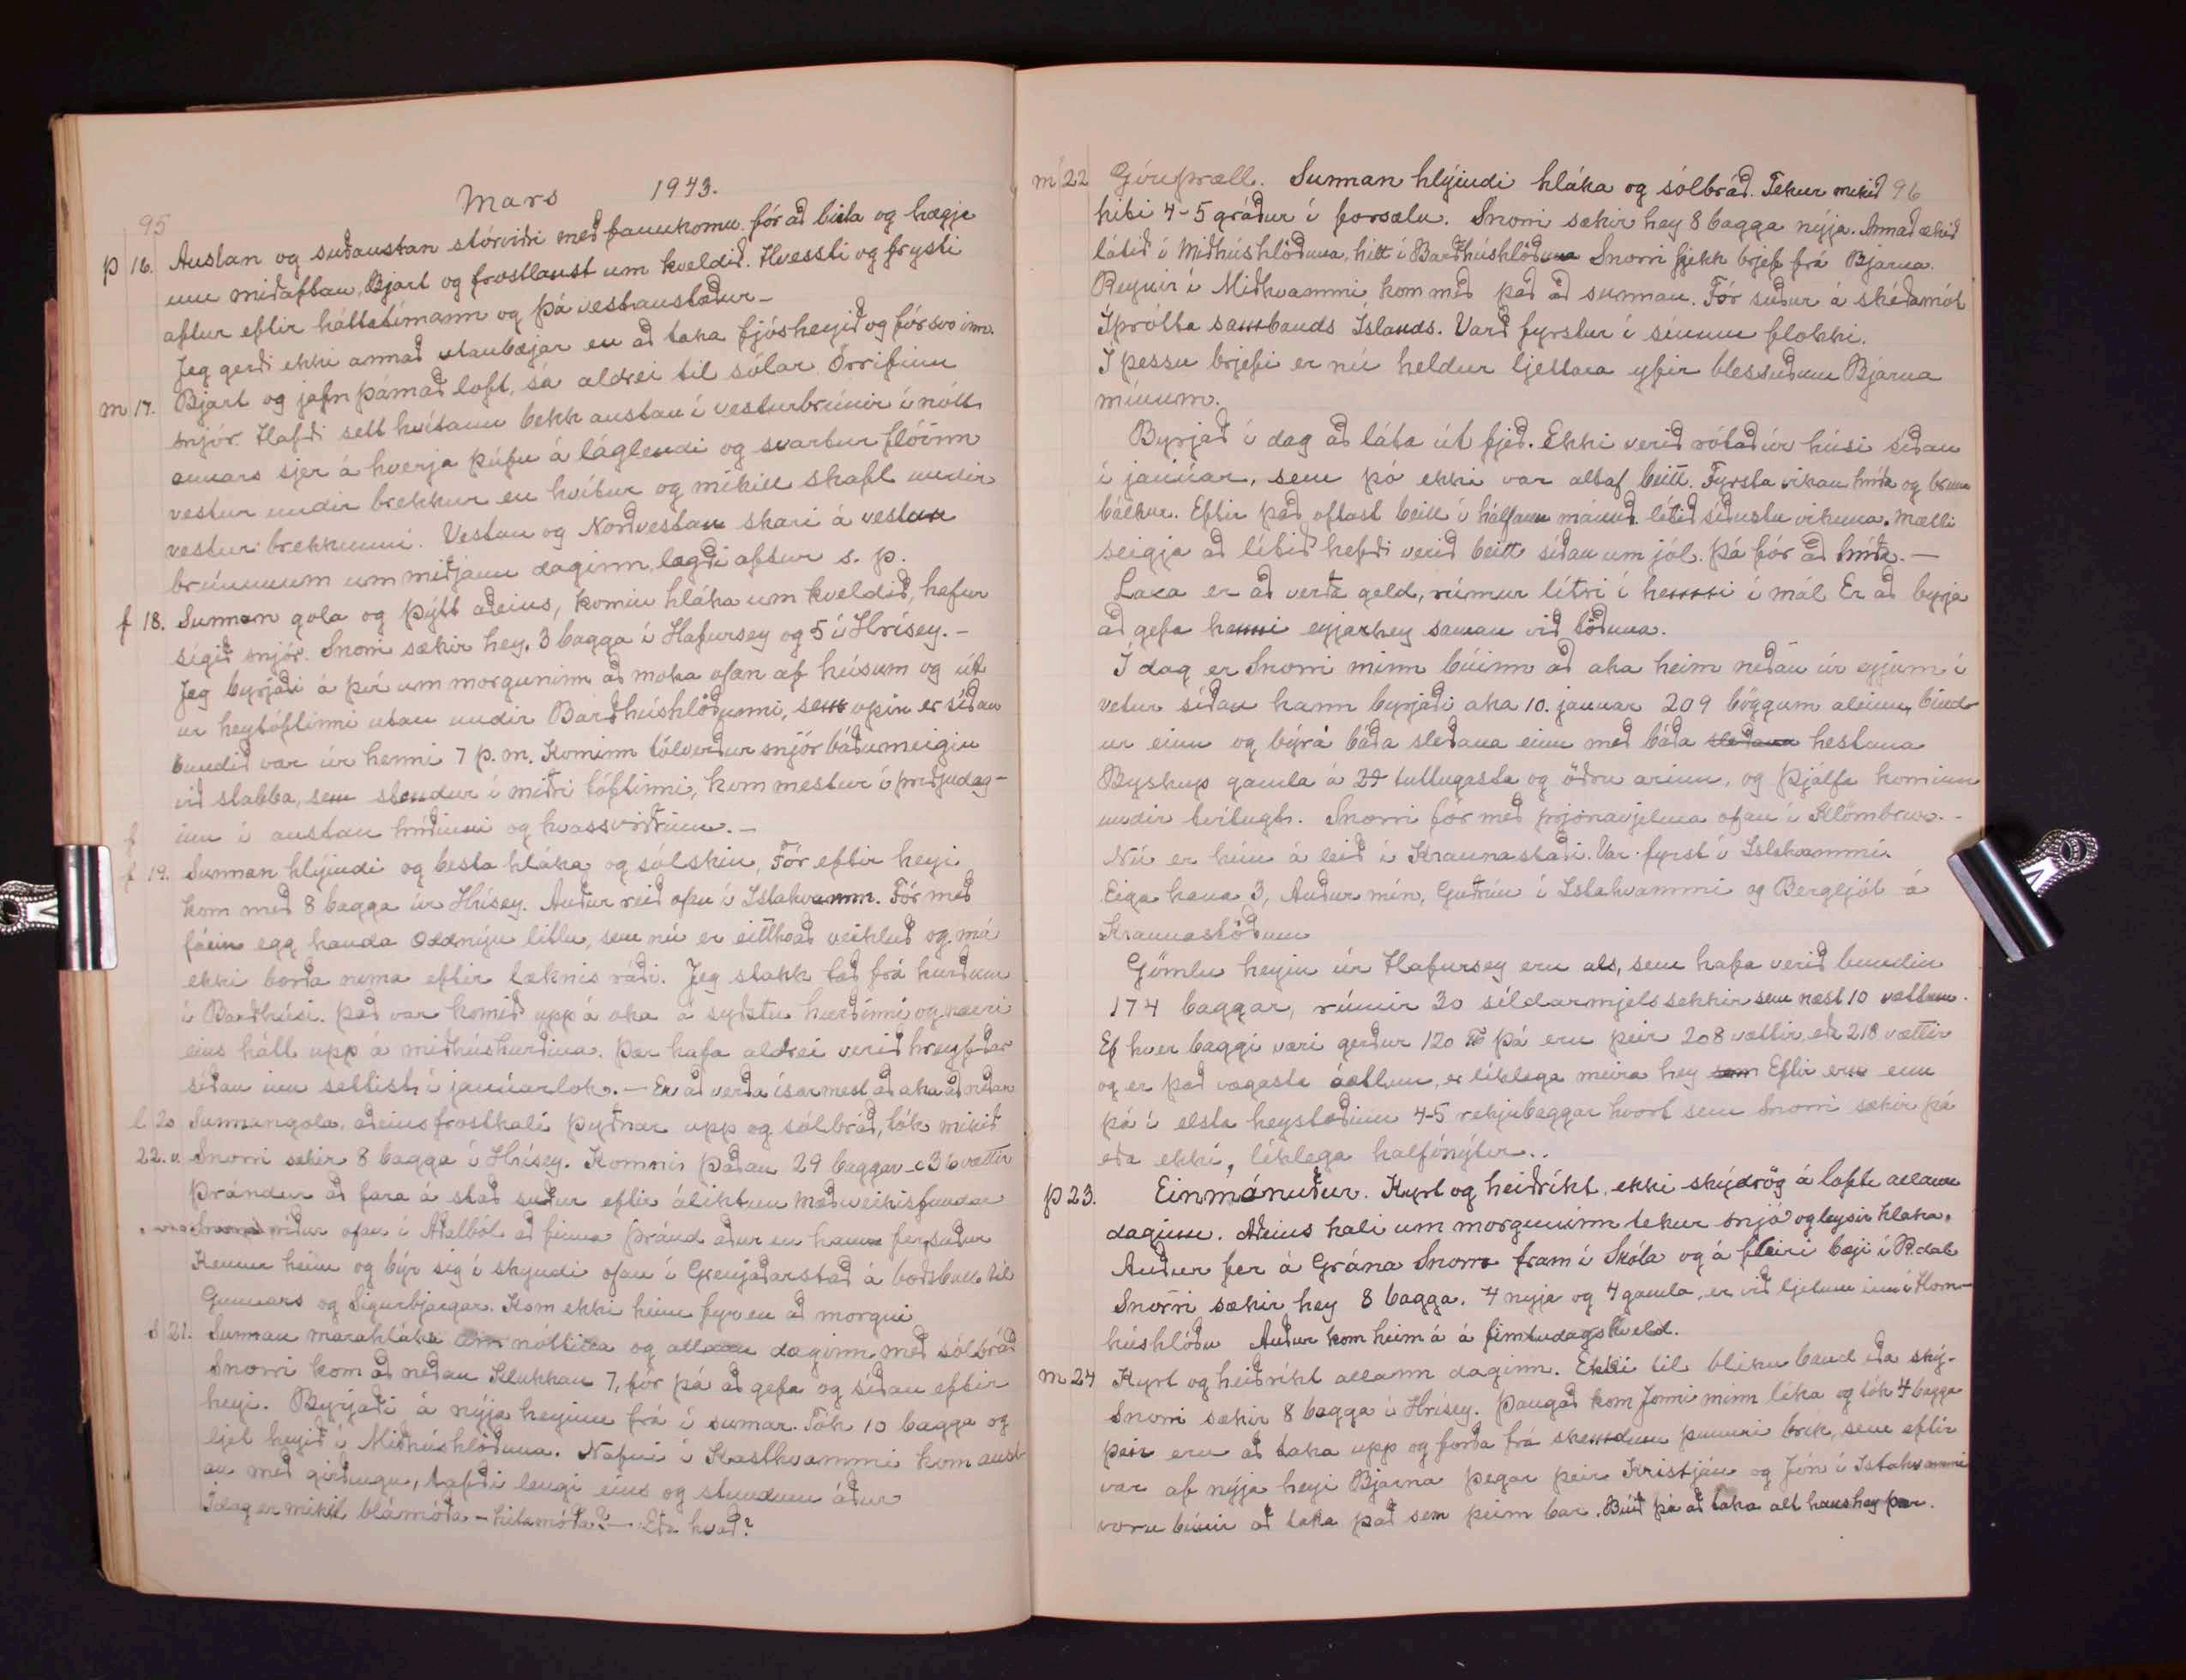 Mars 1943.
95
þ 16. Austan og suðaustan stórviðri með fannkomu. fór að birta og hægja
um miðaftan, Bjart og frostlaust um kveldið. Hvessti og frysti
aftur eftir háttatímann og þá vestanstæður-
Jeg gerði ekki annað utanbæjar en að taka fjósheyið og fór svo inn.
m 17. Bjart og jafn þámað loft, sá aldrei til sólar Órrifinn
snjór. Hafði sett hvítann bekk austan í vesturbrúnir í nótt
annars sjer á hverja þúfu á láglendi og svartur flóinn
vestur undir brekkur en hvítur og mikill skafl undir
vestur brekkunni. Vestan og Norðvestan skari á vestur
brúnunum um miðjann daginn, lægði aftur s. p.
f 18. Sunnan gola og þýtt aðeins, komin hláka um kveldið, hefur
sígið snjór. Snorri sækir hey, 3 bagga í Hafursey og 5 í Hrísey.-
Jeg byrjaði á því um morguninn að moka ofan af húsum og út
úr heytóftinni utan undir Barðhúshlöðunni, sem opin er síðan
bundið var úr henni 7 þ. m. Kominn tólverður snjór báðumeigin
við stabba, sem stendur í miðri tóftinni, kom mestur í þriðjudag-
inn í austan hríðinni og hvassviðrinu.-
f 19. Sunnan hlýindi og besta hláka og sólskin, Fór eftir heyi
kom með 8 bagga úr Hrísey. Auður reið ofan í Ystahvamm. Fór með
fáein egg handa Oddnýju litlu, sem nú er eitthvað veikluð og má
ekki borða nema eftir læknis ráði. Jeg stakk tað frá hurðum
í Barðhúsi. það var komið upp á oka á syðstu hurðinni og næri
eins hátt upp á miðhúshurðina. Þær hafa aldrei verið hreyfðar
síðan inn settist í janúarlok.- Er að verða ísar mest að aka að neðan
l 20 Sunnangola, aðeins frosthali þyðnar upp og sólbráð, tók mikið
22. v. Snorri sækir 8 bagga í Hrísey. Komnir þaðan 29 baggar - c 36 vættir
Þrándur að fara á stað suður eftir áliktun mæðiveikisfundar
ríður ofan í Aðalból að finna Þránd aður en hann fer suður
Kemur heim og býr sig í skyndi ofan í Grenjaðarstað á boðsball til
Gunnars og Sigurbjargar. Kom ekki heim fyr en að morgni
s 21. Sunnan marahláka um nóttina og allann daginn með sólbráð
Snorri kom að neðan Klukkan 7, fór þá að gefa og síðan eftir
heyi. Byrjaði á nýja heyinu frá í sumar. Tók 10 bagga og
ljet heyið í Miðhúshlöðuna. Nafni í Kasthvammi kom aust
an með girðingu, tafði lengi eins og stundum áður
Í dag er mikil blámóða - hitamóða? - Eða hvað?
96
m 22 Góuþræll. Sunnan hlýindi hláka og sólbráð. Tekur mikið
hiti 4-5 gráður í forsælu. Snorri sækir hey 8 bagga nýja. Annað ækið
látið í Miðhúshlöðuna, hitt í Barðhúshlöðuna Snorri fjekk brjef frá Bjarna.
Reynir í Miðhvammi kom með það að sunnan. Fór suður á skíðamót
Íþrótta sambands Íslands. Varð fyrstur í sínum flokki.
Í þessu brjefi er nú heldur ljettara yfir blessuðum Bjarna
mínum.
Byrjað í dag að láta út fjeð. Ekki verið rótað úr húsi síðan
í janúar, sem þó ekki var altaf beitt. Fyrsta vikan hríða og bruna
bálkur. Eftir það oftast beitt í hálfann mánuð. lítið síðustu vikuna. Mætti
seigja að lítið hefði verið beitt síðan um jól. Þá fór að hríða.-
Laxa er að verða geld, rúmur lítri í hessi í mál Er að byrja
að gefa henni eyjarhey saman við töðuna.
Í dag er Snorri minn búinn að aka heim neðan úr eyjum í
vetur síðan hann byrjaði aka 10. januar 209 böggum aleinn, bind-
ur einn og býr á báða sleðana einn með báða sleðana hestana
Byskup gamla á 29 tuttugasta og öðru árinu, og Þjálfa kominn
undir tvítugt. Snorri fór með prjónavjelina ofan í Klömbrur.-
Nú er hún á leið í Kraunastaði. Var fyrst í Ystahvammi.
Eiga hana 3, Auður mín, Guðrún í Ystahvammi og Bergljót á
Kraunastöðum
Gömlu heyin úr Hafursey eru als, sem hafa verið bundin
174 baggar, rúmir 30 síldarmjelssekkir sem næst 10 vættum.
Ef hver baggi væri gerður 120 ℔ þá eru þeir 208 vættir, eða 218 vættir
og er það vægasta áætlun, er líklega meira hey sem Eftir eru enn
þá í elsta heystæðinu 4-5 rekjubaggar hvort sem Snorri sækir þá
eða ekki, líklega halfónýtir..
þ 23. Einmánuður. Kyrt og heiðríkt, ekki skýdrög á lofti allann
daginn. Aðeins hali um morguninn tekur snjó og leysir klaka.
Auður fer á Grána Snorra fram í Skóla og á fleiri bæji í R.dal
Snorri sækir hey 8 bagga. 4 nyja og 4 gamla, er við ljetum inn í Hom-
húshlöðu Auður kom heim á á fimtudagskveld.
m 24 Kyrt og heiðríkt allann daginn. Ekki til bliku band eða ský-
Snorri sækir 8 bagga í Hrísey. Þangað kom Jonni minn líka og tók 4 bagga
þeir eru að taka upp og forða frá skemdum þunnri brik, sem eftir
var af nýja heyi Bjarna þegar þeir Kristján og Jón í Ystahvammi
voru búnir að taka það sem þeim bar. Búið þá að taka alt hanshey þar.